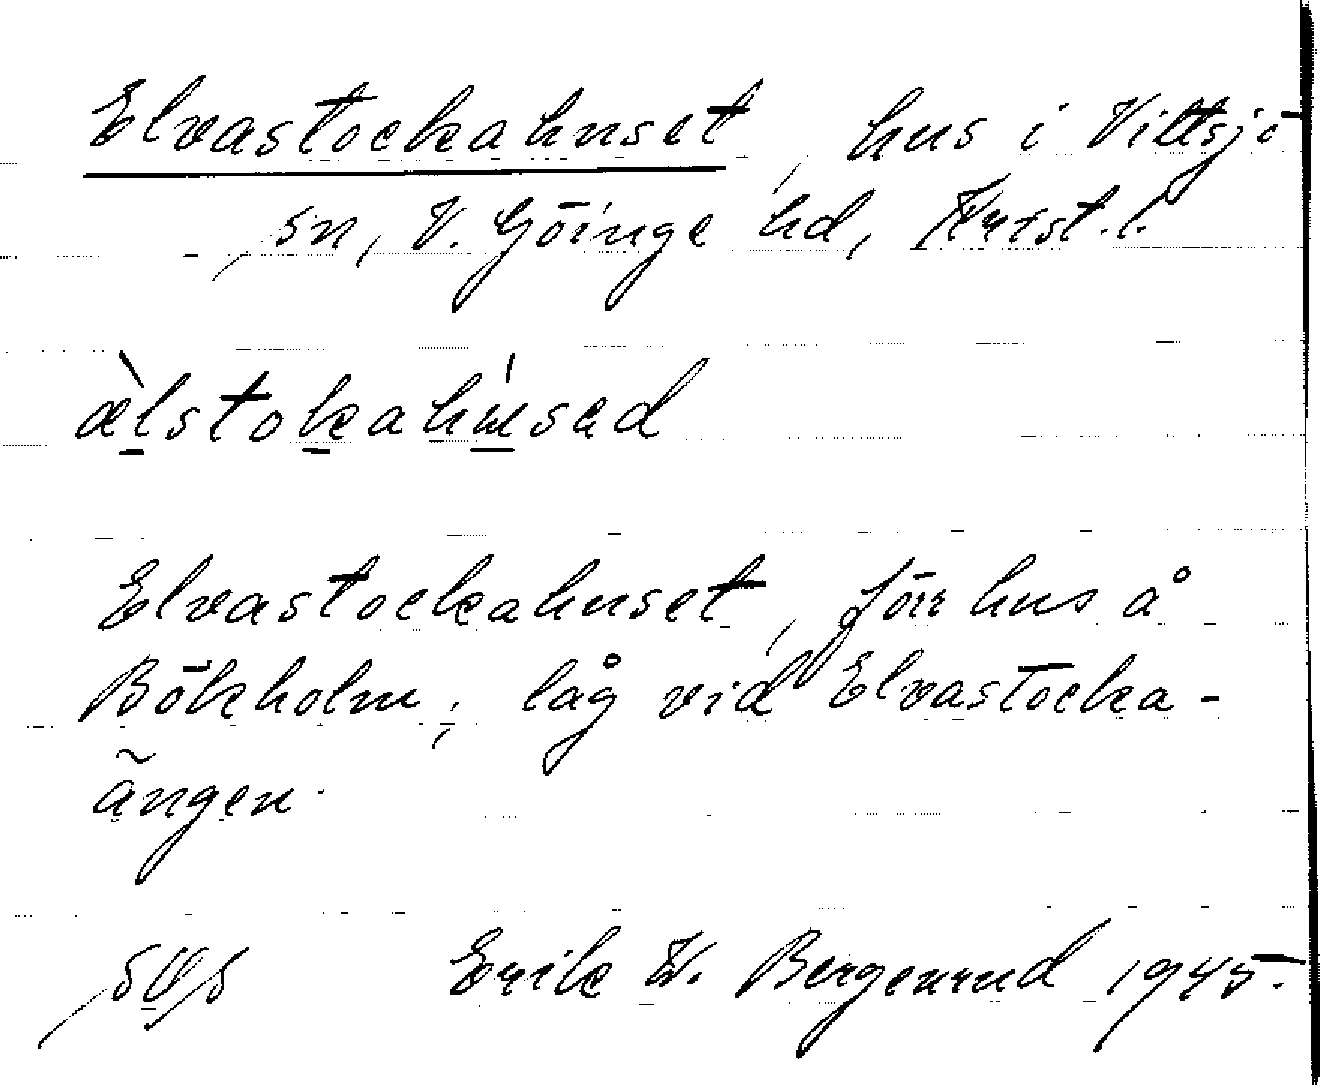 Elvastockahuset, hus i Vittsjö
sn, V. Göinge hd, Krist. l.
ælstokahused
Elvastockahuset, förr hus å
Bökholm; låg vid Elvastocka-
ängen.
Erik W. Bergenrud 1945.